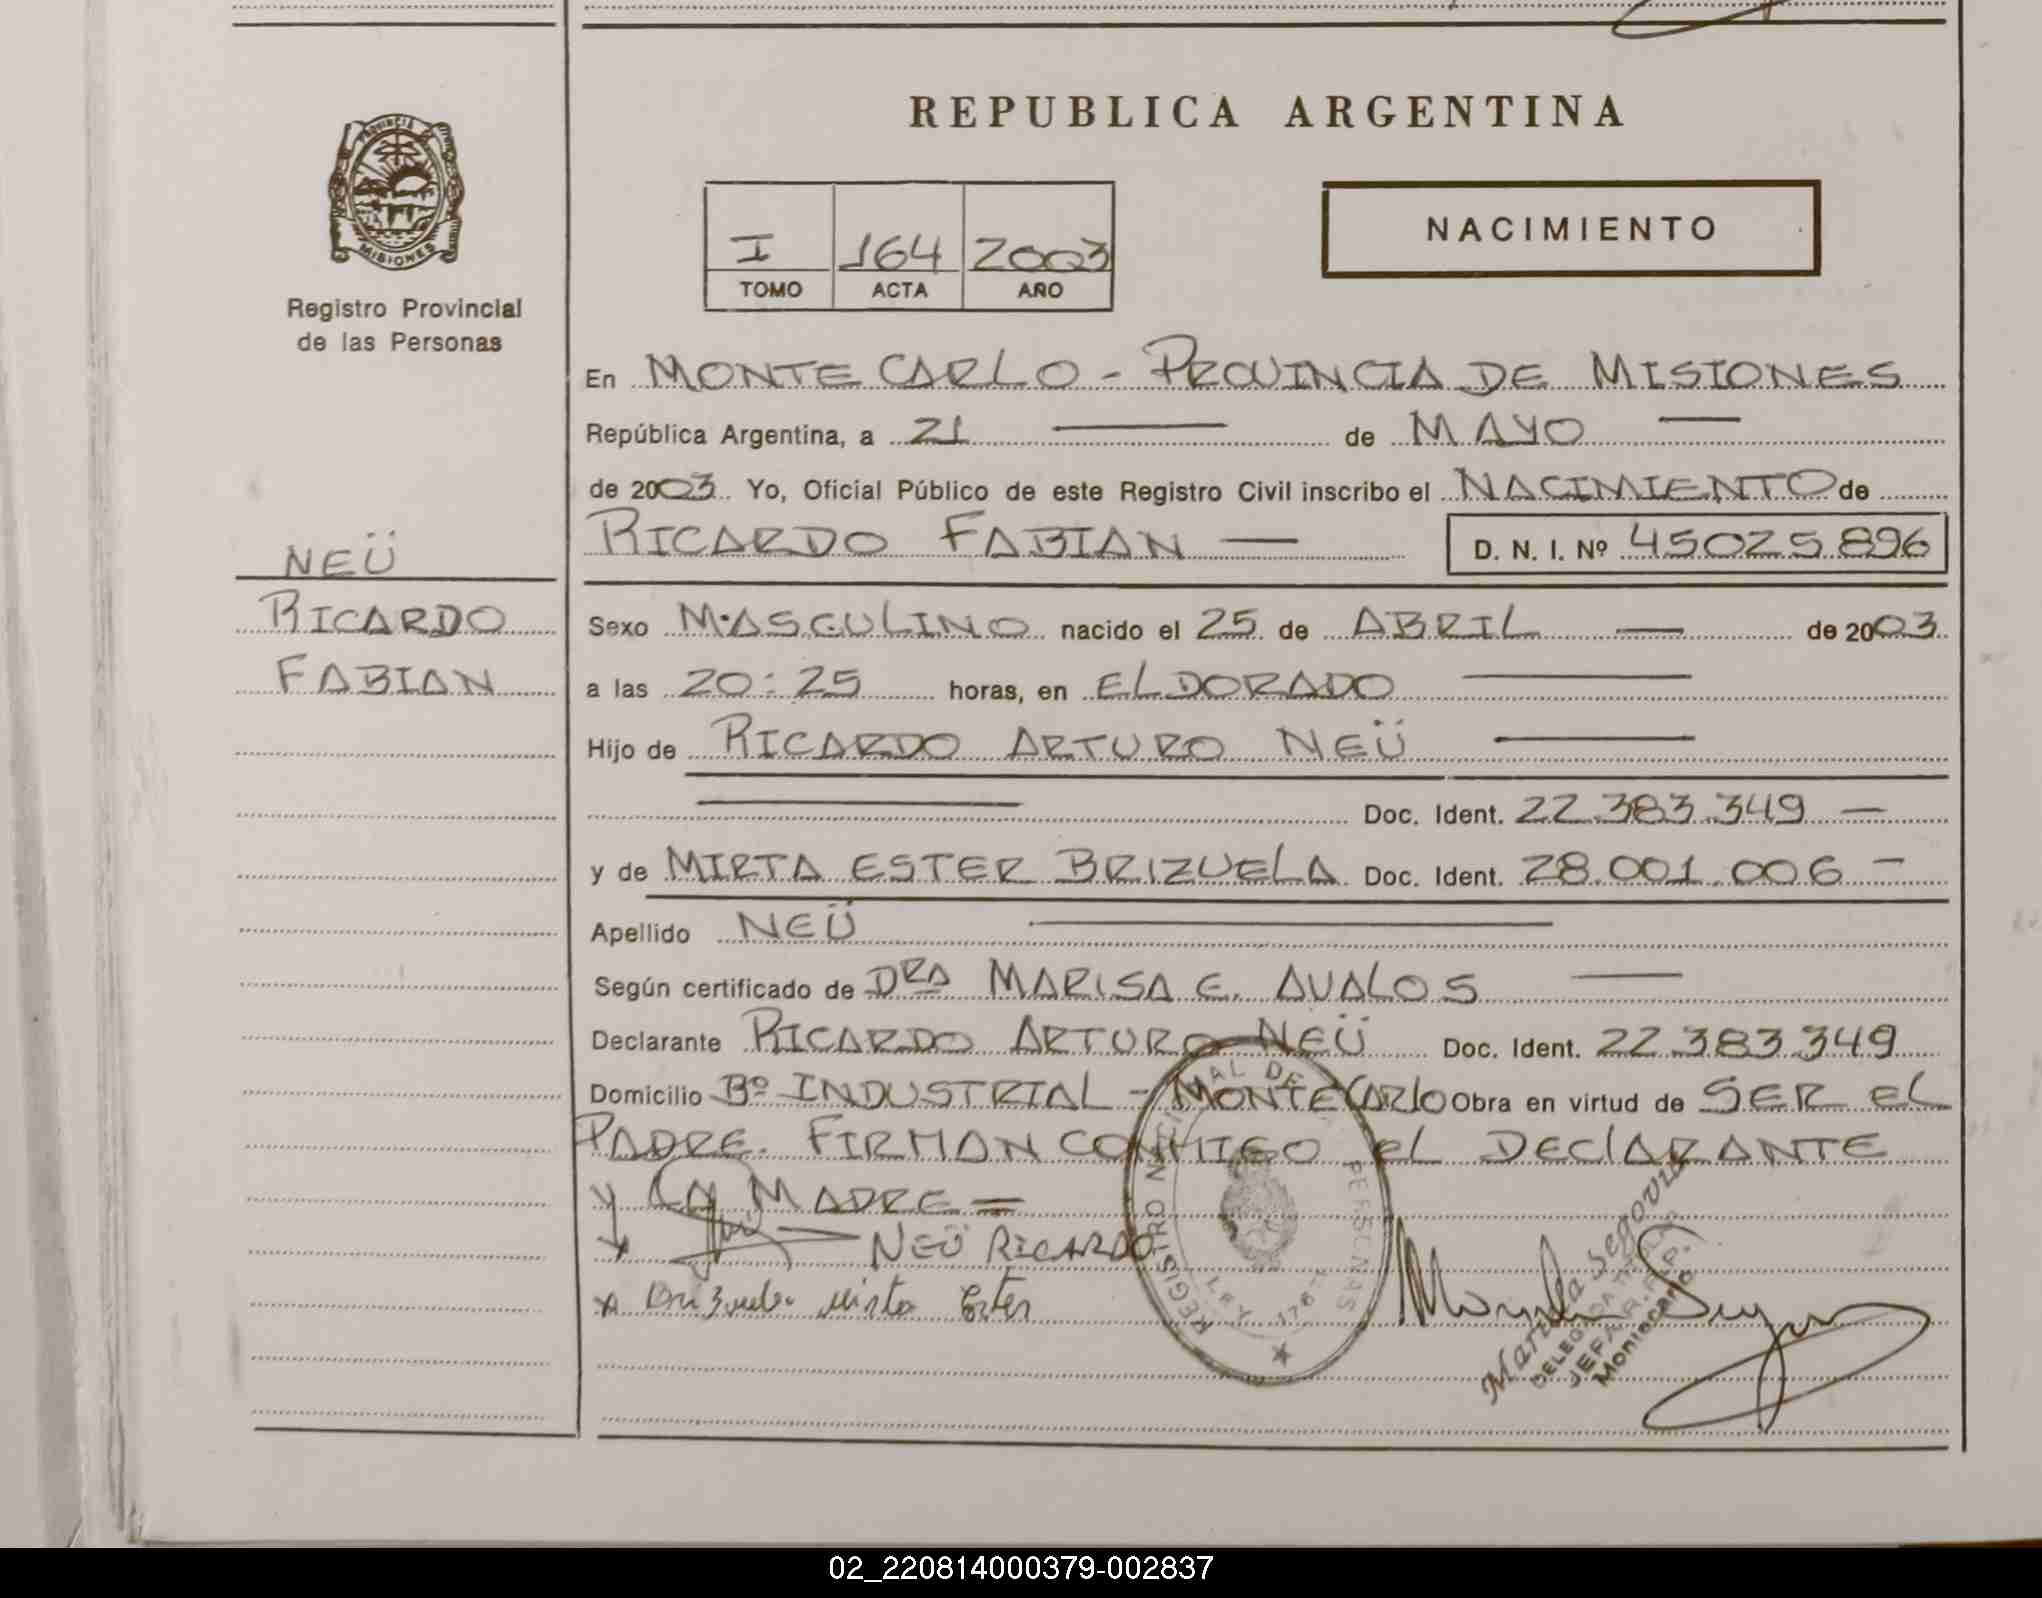 REPUBLICA ARGENTINA
PROVINCIA
MISIONES
Registro Provincial
de las Personas
I 164 2003
TOMO ACTA AÑO
NACIMIENTO
En MONTE CARLO - PROVINCIA DE MISIONES
República Argentina, a 21 — de MAYO —
de 2003 Yo, Oficial Público de este Registro Civil inscribo el NACIMIENTO de
RICARDO FABIAN — D. N. I. Nº 45025896
NEÜ
RICARDO
FABIAN
Sexo MASCULINO nacido el 25 de ABRIL — de 2003
a las 20:25 horas, en ELDORADO —
Hijo de RICARDO ARTURO NEÜ —
— Doc. Ident. 22.383.349 —
y de MIRTA ESTER BRIZUELA Doc. Ident. 28.001.006 —
Apellido NEÜ —
Según certificado de DRA MARISA E. AVALOS —
Declarante RICARDO ARTURO NEÜ Doc. Ident. 22.383.349
Domicilio Bº INDUSTRIAL - MONTECARLO Obra en virtud de SER EL
PADRE. FIRMAN CONMIGO EL DECLARANTE
Y LA MADRE =
NEÜ RICARDO
Brizuela Mirta Ester
REGISTRO DE PERSONAS
LEY
Segovia
DELEGADA
JEFA R.P.P.
Montecarlo
02_220814000379-002837